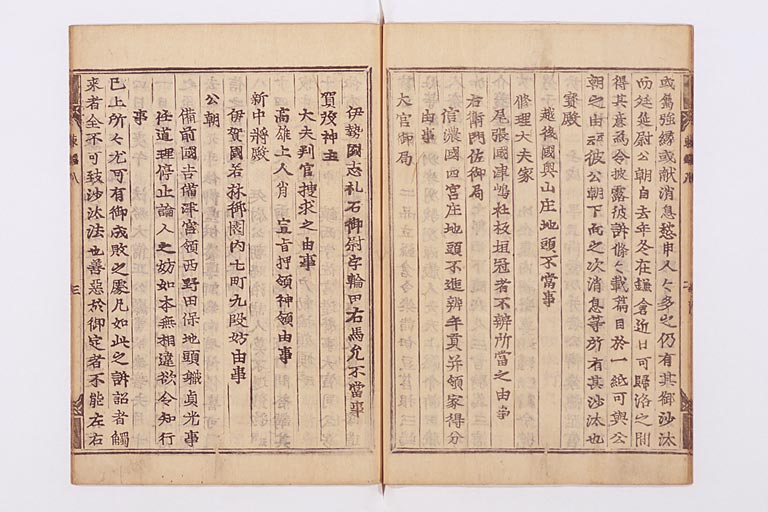 或屬強縁或献消息愁申人々多之仍有其御沙汰
而廷尉公朝自去年冬在鎌倉近日可歸洛之間
得其意爲令披露彼訴條々載篇目於一紙可與公
朝之由云彼公朝下向之次消息等所有其沙汰也
寳殿
越後國奥山庄地頭不當事
修理大夫家
尾張國津嶋社板垣冠者不辨所當之由事
右衛門佐御局
信濃國四宮庄地頭不進辨年貢并領家得分
由事
大宮御局
伊勢國志礼石御厨字輪田右馬允不當事
賀茂神主
大夫判官捜求之由事
高雄上人 宣旨押領神領由事
新中將殿
伊賀國若林御園内七町九段妨由事
公朝
備前國吉備津宮領西野田保地頭職貞光事
任道理停止論人之妨如本無相違欲令知行
事
已上所々尤可有御成敗之處凡如此之訴詔者觸
來者全不可致沙汰法也善惡於御定者不能左右
東鑑八
三